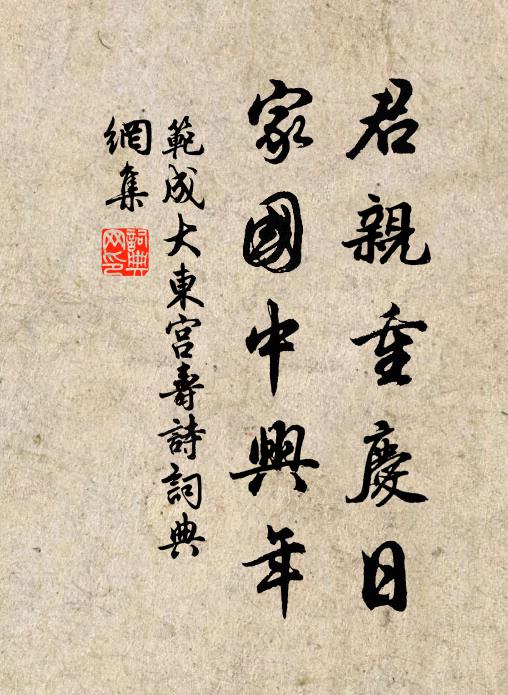 君親重慶日
家國中興年
範成大東宮壽詩詞典
網集
詞典網印